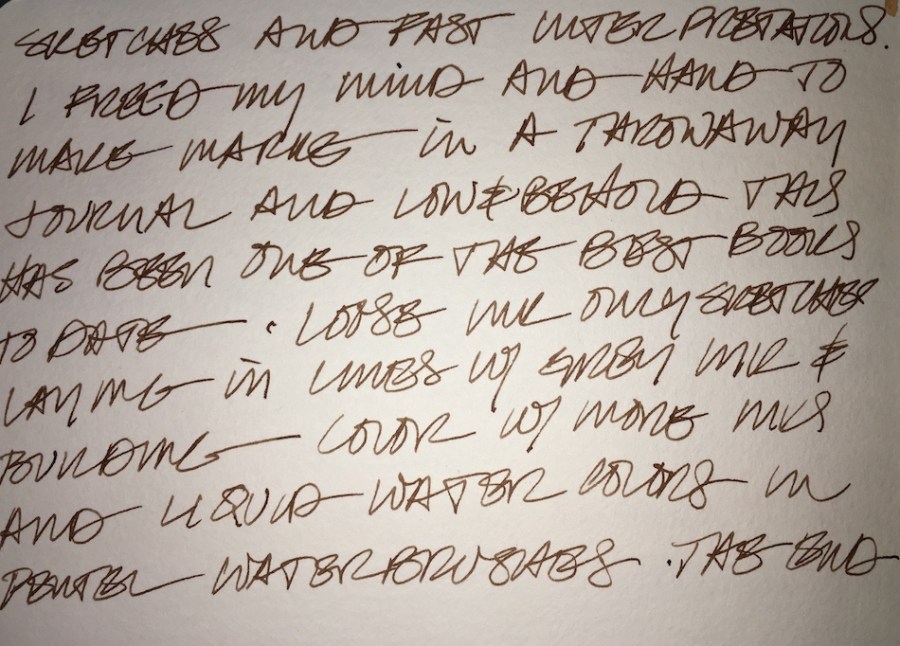 SKETCHES AND FAST INTERPRETATIONS.
I FREED MY MIND AND HAND TO
MAKE MARKS IN A THROWAWAY
JOURNAL AND LOW & BEHOLD THIS
HAS BEEN ONE OF THE BEST BOOKS
TO DATE. LOOSE INK ONLY SKETCHES
LAYING IN LINES W/ GREY INK &
BUILDING COLOR W/ MORE INKS
AND LIQUID WATER COLORS IN
PENTEL WATERBRUSHES. THE END